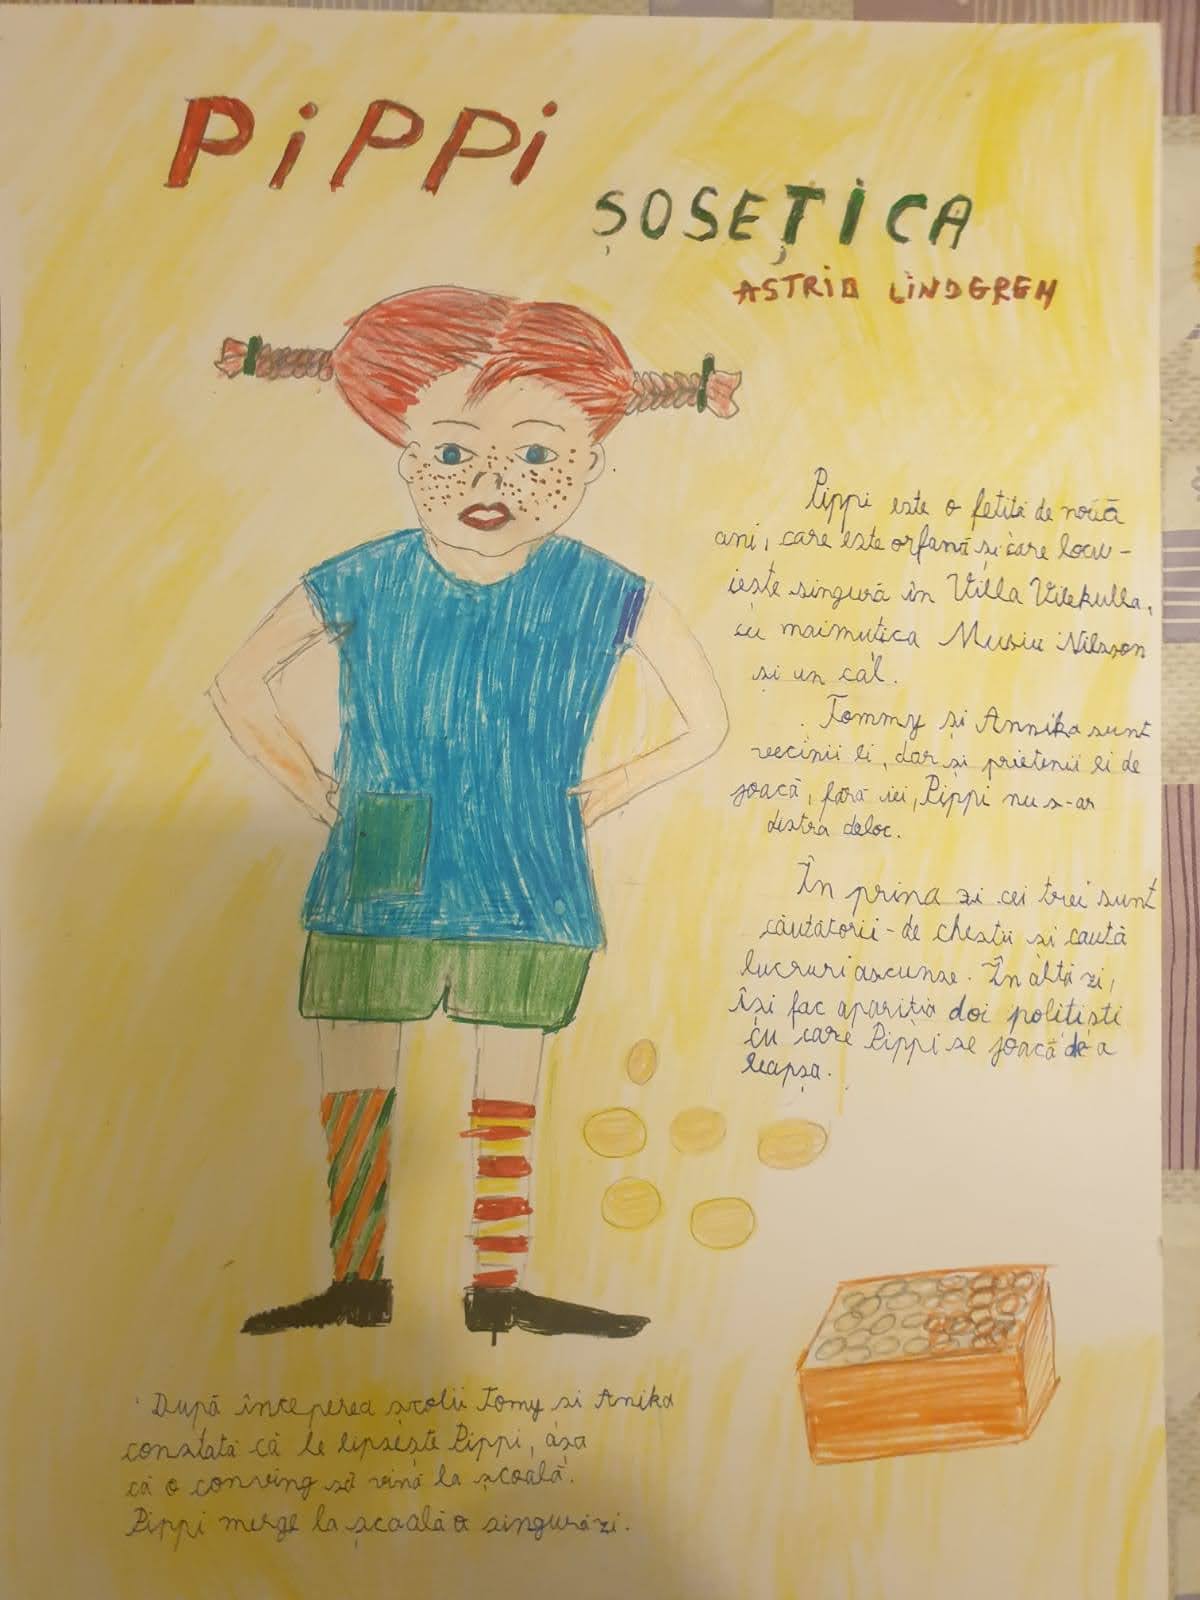 PiPPi
ȘOSEȚiCA
ASTRiD LiNDGREN
Pippi este o fetită de nouă
ani, care este orfană și care locu-
iește singură în Villa Vilekulla,
cu maimuțica Musiu Nilsson
și un cal.
Tommy și Annika sunt
vecinii ei, dar și prietenii ei de
joacă, fără iei, Pippi nu s-ar
distra deloc.
În prina zi cei trei sunt
căutătorii-de chestii și caută
lucruri ascunse. În altă zi,
își fac apariția doi politiști
cu care Pippi se joacă de a
leapșa.
După începerea școlii Tomy si Anika
constată că le lipsește Pippi, așa
că o conving să vină la școală.
Pippi merge la școală o singură zi.